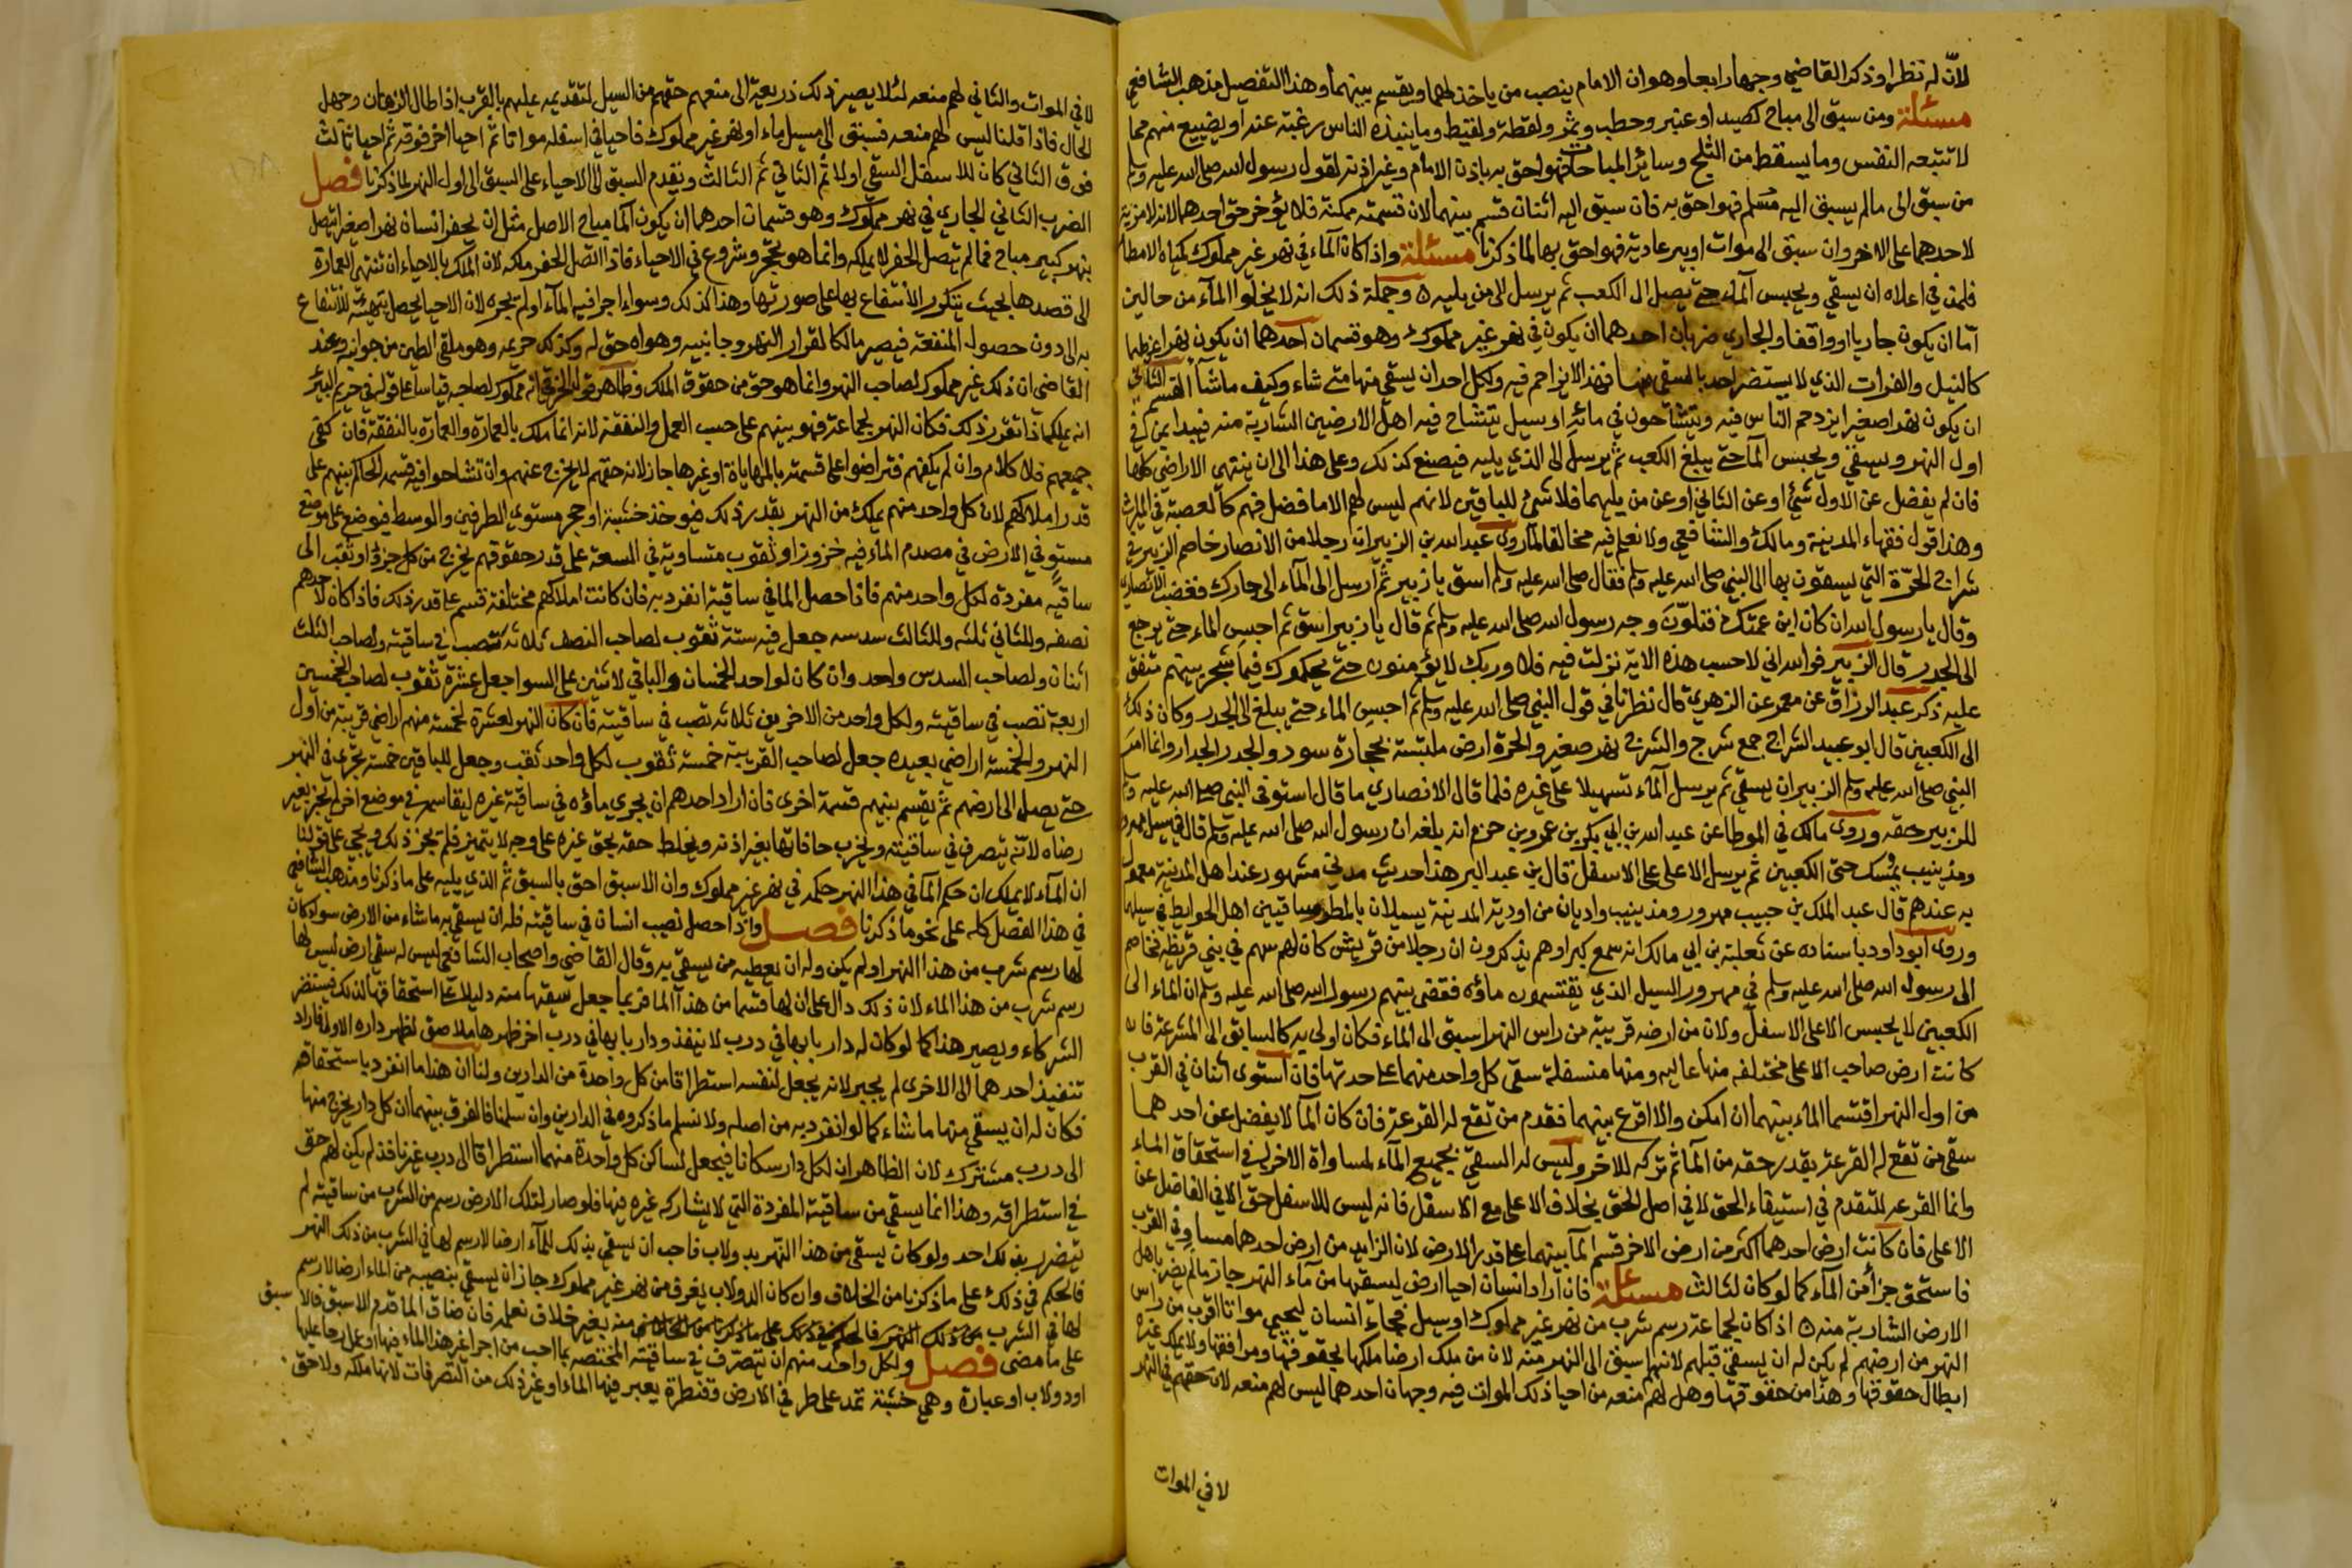 لانّ له نظرا وذكر القاضي وجها رابعا وهو ان الامام ينصب من ياخذ لهما ويقسم بينهما وهذا التفصيل مذهب الشافعي
مسئلة ومن سبق الى مباح كصيد او عنبر وحطب وثمر ولقطة ولقيط وما ينبذه الناس رغبة عنه او يضيع منهم مما
لا تتبعه النفس وما يسقط من الثلج وسائر المباحات فهو احق به باذن الامام وغير اذنه لقول رسول الله صلى الله عليه وسلم
من سبق الى مالم يسبق اليه مسلم فهو احق به فان سبق اليه اثنان قسم بينهما لان قسمته ممكنة فلا يؤخر حق احدهما لانه لا مزية
لاحدهما على الاخر وان سبق الى موات او بير عادية فهو احق بها لما ذكرنا مسئلة واذا كان الماء في نهر غير مملوك كمياه الامطار
فلمن في اعلاه ان يسقي ويحبس الماء حتى يصل الى الكعب ثم يرسل الى من يليه ه وجملة ذلك انه لا يخلوا الماء من حالين
امّا ان يكون جاريا او واقفا والجاري ضربان احدهما ان يكون في نهر غير مملوك وهو قسمان احدهما ان يكون نهرا عظيما
كالنيل والفرات الذي لا يستضر احد بالسقي منها فهذا لا يزاحم فيه ولكل احد ان يسقي منها متى شاء وكيف ما شا القسم الثاني
ان يكون نهرا صغيرا يزدحم الناس فيه ويتشاحون في مائه او سيل يتشاح فيه اهل الارضين الشاربة منه فيبدا بمن في
اول النهر ويسقي ويحبس الماء حتى يبلغ الكعب ثم يرسل الى الذي يليه فيصنع كذلك وعلى هذا الى ان ينتهي الاراضي كلها
فان لم يفضل عن الاول شيء او عن الثاني او عن من يليهما فلا شيء للباقين لانهم ليس لهم الا ما فضل فهم كالعصبة في الميراث
وهذا قول فقهاء المدينة ومالك والشافعي ولا نعلم فيه مخالفا لما روى عبد الله بن الزبير ان رجلا من الانصار خاصم الزبير في
شراج الحرّة التي يسقون بها الى النبي صلى الله عليه وسلم فقال صلى الله عليه وسلم اسق يا زبير ثم ارسل الى الماء الى جارك فغضب الانصاري
وقال يا رسول الله ان كان ابن عمتك فتلوّن وجه رسول الله صلى الله عليه وسلم ثم قال يا زبير اسق ثم احبس الماء حتى يرجع
الى الجدر قال الزبير فوالله اني لاحسب هذه الاية نزلت فيه فلا وربك لا يؤمنون حتى يحكموك فيما شجر بينهم متفق
عليه ذكر عبد الرزاق عن معمر عن الزهري قال نظرنا في قول النبي صلى الله عليه وسلم ثم احبس الماء حتى يبلغ الى الجدر وكان ذلك
الى الكعبين قال ابو عبيد الشراج جمع شرج والشرج نهر صغير والحرة ارض ملبسة بحجارة سود والجدر الجدار وانما امر
النبي صلى الله عليه وسلم الزبير ان يسقي ثم يرسل الماء تسهيلا على غيره فلما قال الانصاري ما قال استوفى النبي صلى الله عليه وسلم
للزبير حقه وروى مالك في الموطا عن عبد الله بن ابي بكر بن عمرو بن حزم انه بلغه ان رسول الله صلى الله عليه وسلم قال في سيل مهزور
ومذينيب يمسك حتى الكعبين ثم يرسل الاعلى على الاسفل قال بن عبد البر هذا حديث مدني مشهور عند اهل المدينة معمول
به عندهم قال عبد الملك بن حبيب مهرور ومذينيب واديان من اودية المدينة يسيلان بالمطر يتنافس اهل الحوايط في سيلهما
وروى ابو داود باسناده عن ثعلبة بن ابي مالك انه سمع كبراوهم يذكرون ان رجلا من قريش كان لهم سهم في بني قريظة فخاصم
الى رسول الله صلى الله عليه وسلم في مهرور السيل الذي يقتسمون ماؤه فقضى بينهم رسول الله صلى الله عليه وسلم ان الماء الى
الكعبين لا يحبس الاعلى الاسفل ولان من ارضه قريبة من راس النهر اسبق الى الماء فكان اولى به كالسابق الى المشرعة فان
كانت ارض صاحب الاعلى مختلفه منها عاليه ومنها مستفلة سقى كل واحد منهما على حدتها فان استوى اثنان في القرب
من اول النهر اقتسما الماء بينهما ان امكن والا اقرع بينهما فقدم من تقع له القرعة فان كان الما لا يفضل عن احدهما
سقى من تقع له القرعة بقدر حقه من الما ثم تركه للاخر وليس له السقي بجميع الماء لمساواة الاخر له في استحقاق الماء
وانما القرعه للتقدم في استيفاء الحق لا في اصل الحق بخلاف الاعلى مع الاسفل فانه ليس للاسفل حق الا في الفاضل عن
الاعلى فان كانت ارض احدهما اكثر من ارض الاخر قسم الما بينهما على قدر الارض لان الزايد من ارض احدهما مساو في القرب
فاستحق جزأ من الماء كما لو كان لثالث مسئلة فان اراد انسان احيا ارض ليسقيها من ماء النهر جاز ما لم يضر باهل
الارض الشاربة منه ه اذا كان لجماعة رسم شرب من نهر غير مملوك او سيل فجاء انسان ليحيي مواتا اقرب من راس
النهر من ارضهم لم يكن له ان يسقي قبلهم لانهم اسبق الى النهر منه لان من ملك ارضا ملكها بحقوقها ومرافقها ولا يملك غيره
ابطال حقوقها وهذا من حقوقها وهل لهم منعه من احيا ذلك الموات فيه وجهان احدهما ليس لهم منعه لان حقهم في النهر
لا في الموات
لا في الموات والثاني لهم منعه لئلا يصير ذلك ذريعة الى منعهم حقهم من السيل لتقديمه عليهم بالقرب اذا طال الزمان وجهل
الحال فاذا قلنا ليس لهم منعه فسبق الى مسيل ماء او نهر غير مملوك فاحيا في اسفله مواتا ثم احيا اخر فوقه ثم احيا ثالث
فوق الثاني كان للاسفل السقي اولا ثم الثاني ثم الثالث ويقدم السبق الى الاحياء على السبق الى اول النهر لما ذكرنا فصل
الضرب الثاني الجاري في نهر مملوك وهو قسمان احدهما ان يكون الما مباح الاصل مثل ان يحفر انسان نهرا صغيرا يتصل
بنهر كبير مباح فما لم يتصل الحفر لا يملكه وانما هو تحجر وشروع في الاحياء فاذا اتصل الحفر ملكه لان الملك بالاحياء ان تنتهي العمارة
الى قصدها بحيث يتكرر الانتفاع بها على صورتها وهذا كذلك وسواء اجرا فيه الماء او لم يجره لان الاحيا يحصل بتهيئته للانتفاع
به الى دون حصول المنفعة فيصير مالكا لقرار النهر وجانبيه وهواه حق له وكذلك حريمه وهو ملقى الطين من جوانبه وعند
القاضي ان ذلك غير مملوك لصاحب النهر وانما هو حق من حقوق الملك وظاهر قول الخرقي انه مملوك لصاحبه قياسا على قوله في حريم البئر
انه يملكه اذا تقرر ذلك فكان النهر لجماعة فهو بينهم على حسب العمل والنفقة لانه انما ملك بالعمارة والعمارة بالنفقة فان كفى
جميعهم فلا كلام وان لم يكفهم فتراضوا على قسمته بالمهاياة او غيرها جاز لانه حقهم لا يخرج عنهم وان تشاحوا فيه قسمه الحاكم بينهم على
قدر املاكهم لان كل واحد منهم يملك من النهر بقدر ذلك فيوخذ خشبة او حجر مستوي الطرفين والوسط فيوضع على موضع
مستوٍ في الارض في مصدم الماء فيه حزوز او ثقوب متساوية في السعة على قدر حقوقهم يخرج من كل جزء او ثقب الى
ساقيه مفردة لكل واحد منهم فاذا حصل الما في ساقيته انفرد به فان كانت املاكهم مختلفة قسم على قدر ذلك فاذا كان لاحدهم
نصفه وللثاني ثلثه وللثالث سدسه جعل فيه ستة ثقوب لصاحب النصف ثلاثة تصب في ساقيته ولصاحب الثلث
اثنان ولصاحب السدس واحد وان كان لواحد الخمسان والباقي لاثنين على السوا جعل عشرة ثقوب لصاحب الخمسين
اربعة تصب في ساقيته ولكل واحد من الاخرين ثلاثه تصب في ساقيته فان كان النهر لعشرة لخمسة منهم اراضي قريبة من اول
النهر ولخمسة اراضي بعيده جعل لصاحب القريبة خمسة ثقوب لكل واحد ثقب وجعل للباقين خمسة تجري في النهر
حتى يصل الى ارضهم ثم يقسم بينهم قسمة اخرى فان اراد احدهم ان يجري ماؤه في ساقية غيره ليقاسمه في موضع اخر لم يجز بغير
رضاه لانّه يتصرف في ساقيته ويخرب حافاتها بغير اذنه ويخلط حقه بحق غيره على وجه لا يتميز فلم يجز ذلك ويجي على قولنا
ان الماء لا يملك ان حكم الما في هذا النهر حكمه في نهر غير مملوك وان الاسبق احق بالسبق ثم الذي يليه على ما ذكرنا ومذهب الشافعي
في هذا الفصل كله على نحو ما ذكرنا فصل واذا حصل نصيب انسان في ساقيته فله ان يسقي به ما شاء من الارض سواء كان
لها رسم شرب من هذا النهر او لم يكن وله ان يعطيه من يسقي به وقال القاضي واصحاب الشافعي ليس له سقي ارض ليس لها
رسم شرب من هذا الماء لان ذلك دال على ان لها قسما من هذا الما فربما جعل سقيها منه دليلا على استحقاقها لذلك فيستضر
الشركاء ويصير هذا كما لو كان له دار بابها في درب لا ينفذ ودار بابها في درب اخر ظهرها ملاصق لظهر داره الاولى فاراد
تنفيذ احدهما الى الاخرى لم يجيز لانه يجعل لنفسه استطراقا من كل واحدة من الدارين ولنا ان هذا ما انفرد باستحقاقه
فكان له ان يسقي منها ما شاء كما لو انفرد به من اصله ولا نسلم ما ذكروه في الدارين وان سلمنا فالفرق بينهما ان كل دار يخرج منها
الى درب مشترك لان الظاهر ان لكل دار سكانا فيجعل لساكن كل واحدة منهما استطراقا الى درب غير نافذ لم يكن لهم حق
في استطراقه وهذا انما يسقي من ساقيته المفردة التي لا يشاركه غيره فيها فلو صار لتلك الارض رسم من الشرب من ساقيته لم
يتضرر بذلك احد ولو كان يسقي من هذا النهر بدولاب فاحب ان يسقي بذلك الماء ارضا لا رسم لها في الشرب من ذلك النهر
فالحكم في ذلك على ما ذكرنا من الخلاف وان كان الدولاب يغرف من نهر غير مملوك جاز ان يسقي بنصيبه من الماء ارضا لا رسم
لها في الشرب من ذلك النهر منه بغير خلاف نعلمه فان ضاق الما قدم الاسبق فالاسبق
على ما مضى فصل ولكل واحد منهم ان يتصرّف في ساقيته المختصه بما احب من اجرا غير هذا الماء فيها او عمل رحا عليها
او دولاب او عبارة وهي خشبة تمد على طرفي الارض وقنطرة يعبر فيها الماء او غير ذلك من التصرفات لانها ملكه ولا حق